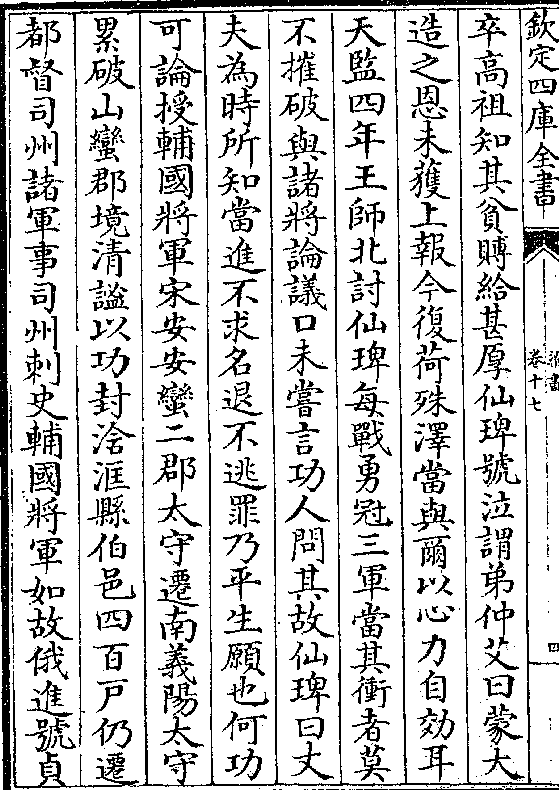 欽定四庫全書
梁書
卷十七
四
卒高祖知其貧賻給甚厚仙琕號泣謂弟仲艾曰蒙大
造之恩未獲上報今復荷殊澤當與爾以心力自効耳
天監四年王師北討仙琕每戰勇冠三軍當其衝者莫
不摧破與諸將論議口未嘗言功人問其故仙琕曰丈
夫為時所知當進不求名退不逃罪乃平生願也何功
可論授輔國將軍宋安安蠻二郡太守遷南義陽太守
累破山蠻郡境清謐以功封浛洭縣伯邑四百戶仍遷
都督司州諸軍事司州刺史輔國將軍如故俄進號貞